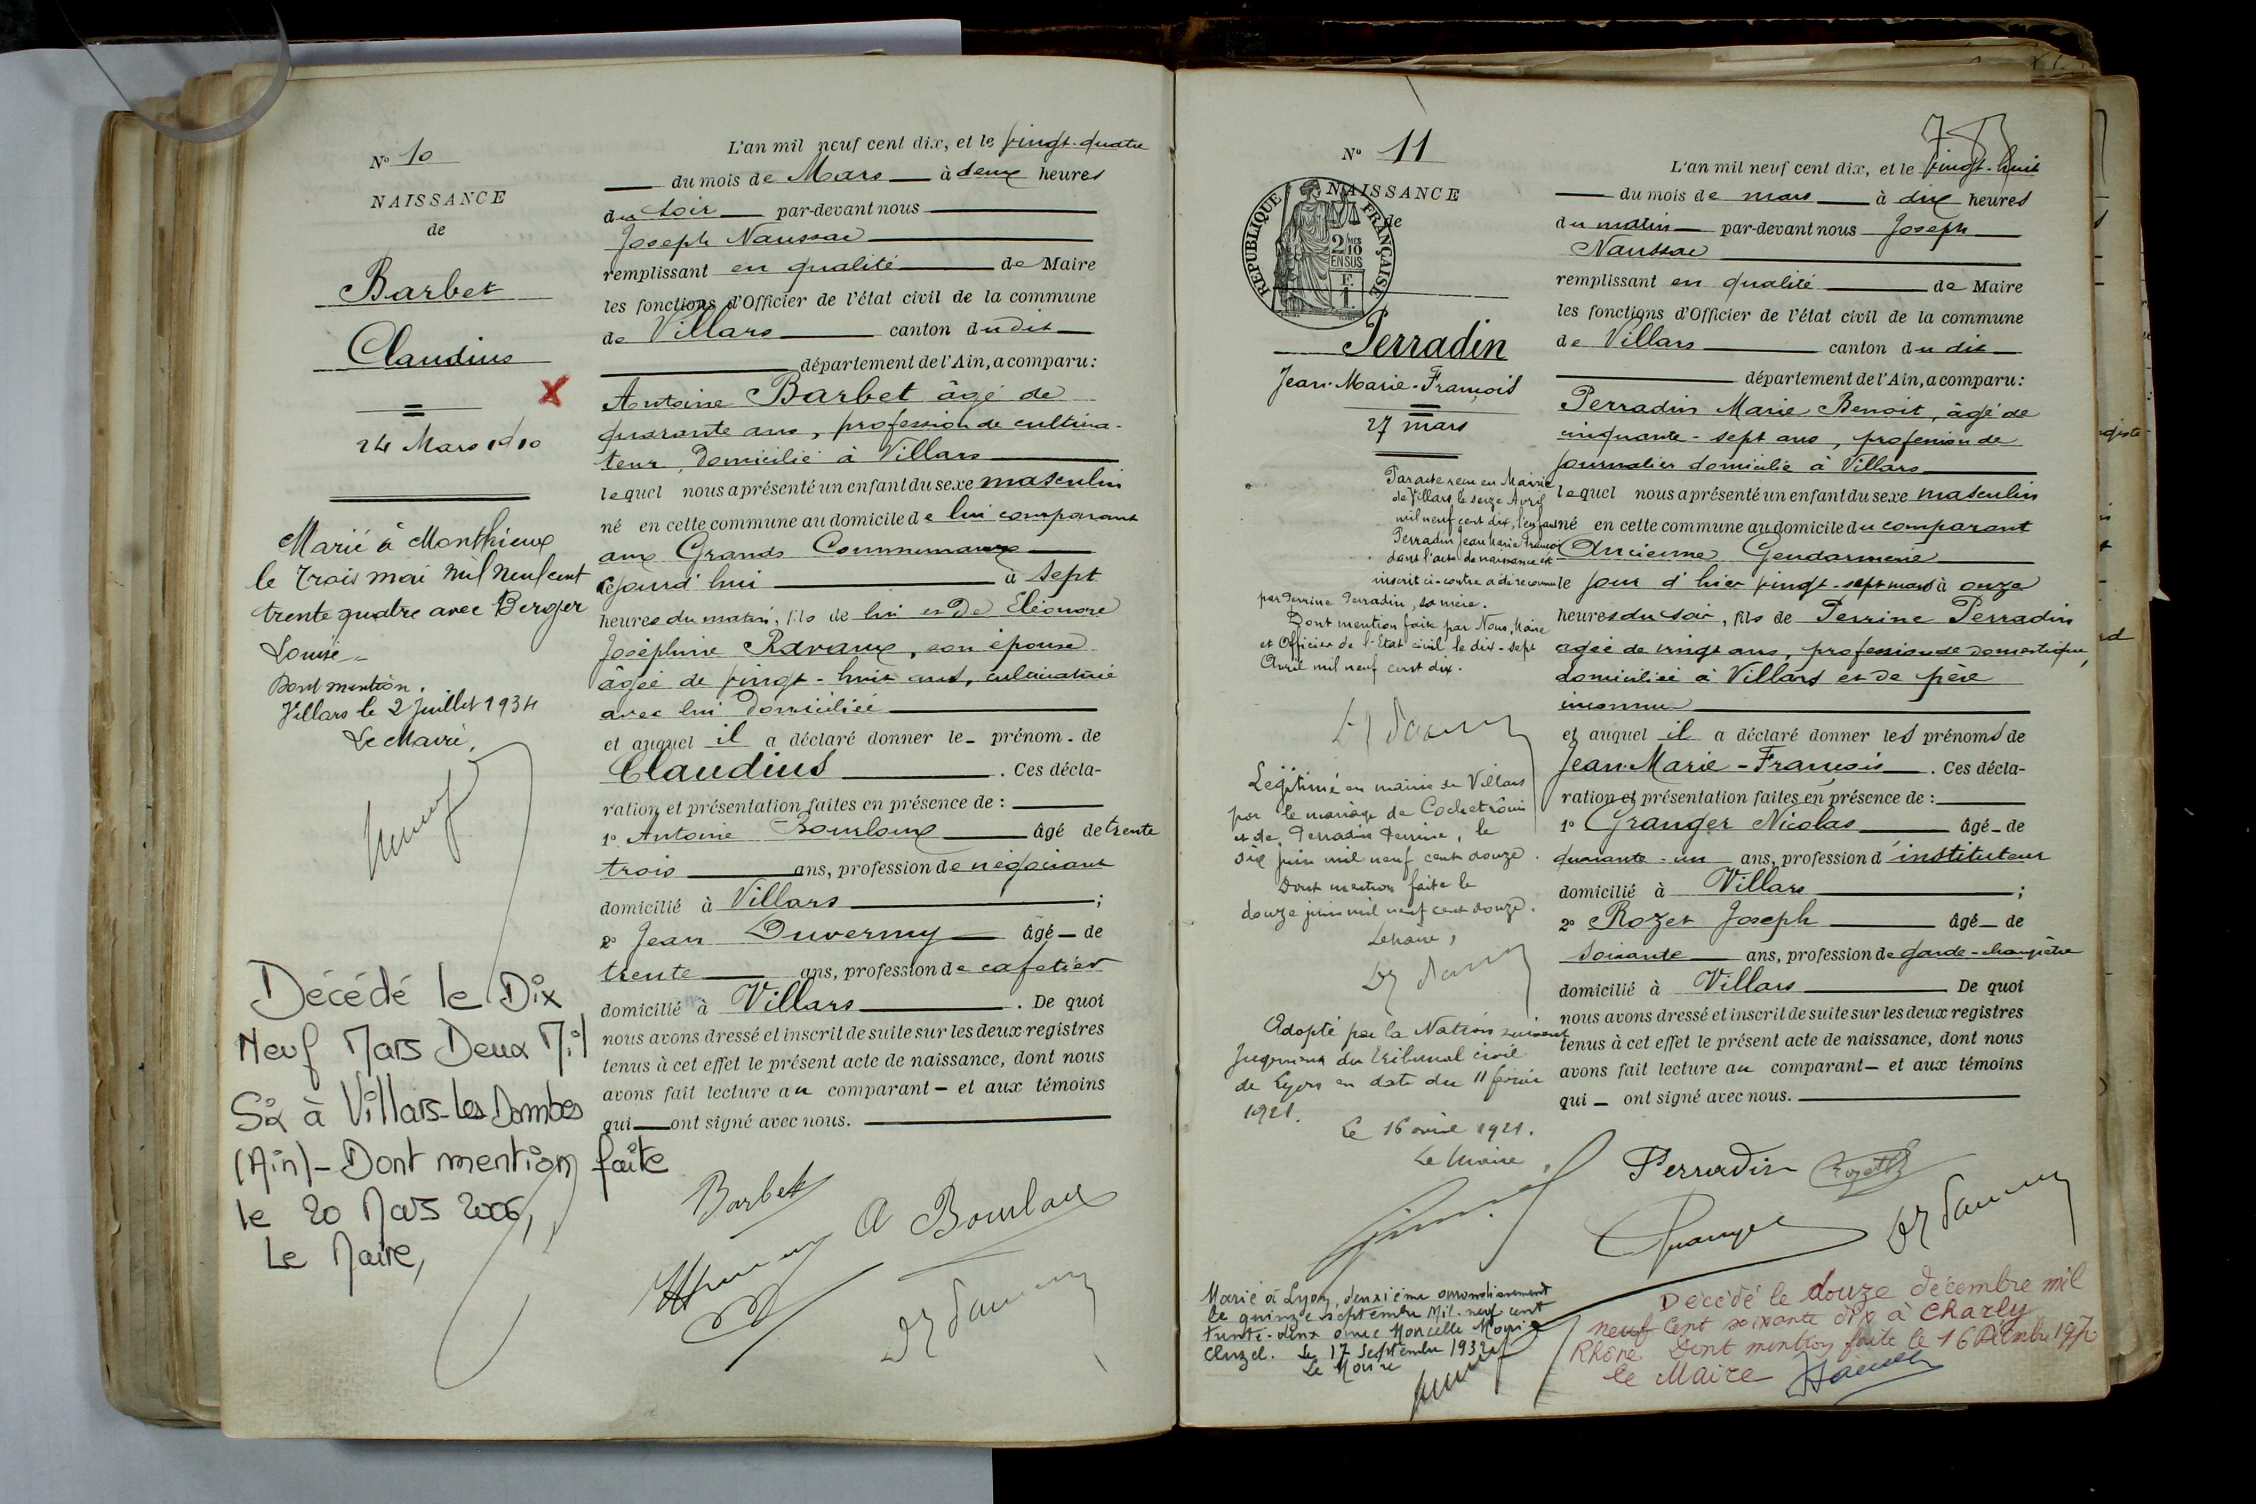 N° 10
NAISSANCE
de
Barbet
Claudius
24 Mars 1910
Marié à Monthieux
le trois mai mil neuf cent
trente quatre avec Berger
Louise
Dont mention.
Villars le 2 Juillet 1934
Le Maire,
Décédé le Dix
Neuf Mars Deux Mil
Six à Villars-les-Dombes
(Ain) - Dont mention faite
le 20 Mars 2006,
Le Maire,
L'an mil neuf cent dix, et le vingt-quatre
du mois de Mars à deux heures
du soir par-devant nous
Joseph Naussac
remplissant en qualité de Maire
les fonctions d'Officier de l'état civil de la commune
de Villars canton du dit
département de l'Ain, a comparu:
Antoine Barbet âgé de
quarante ans, profession de cultiva-
teur, domicilié à Villars
lequel nous a présenté un enfant du sexe masculin
né en cette commune au domicile de lui comparant
aux Grands Communaux
cejourd'hui à sept
heures du matin, fils de lui et de Eléonore
Joséphine Ravaux, son épouse
âgée de vingt-huit ans, cultivatrice
avec lui domiciliée
et auquel il a déclaré donner le prénom de
Claudius. Ces décla-
ration et présentation faites en présence de :
1° Antoine Bourloux âgé de trente
trois ans, profession de négociant
domicilié à Villars ;
2° Jean Duvernay âgé de
trente ans, profession de cafetier
domicilié à Villars. De quoi
nous avons dressé et inscrit de suite sur les deux registres
tenus à cet effet le présent acte de naissance, dont nous
avons fait lecture au comparant et aux témoins
qui ont signé avec nous.
Barbet
A Bourloux
N° 11
NAISSANCE
de
REPUBLIQUE FRANÇAISE
2/10 MES
EN SUS
F.
1.
Perradin
Jean-Marie-François
27 mars
Par acte reçu en Mairie
de Villars le seize Avril
mil neuf cent dix, l'enfant
Perradin Jean Marie François
dont l'acte de naissance est
inscrit ci-contre a été reconnu
par Perrine Perradin, sa mère.
Dont mention faite par Nous, Maire
et Officier de l'Etat civil le dix-sept
Avril mil neuf cent dix.
Légitimé en mairie de Villars
par le mariage de
et de Perradin Perrine, le
six juin mil neuf cent douze.
Dont mention faite le
douze juin mil neuf cent douze.
Le Maire,
Adopté par la Nation suivant
jugement du tribunal civil
de Lyon en date du 11 février
1921.
Le 16 avril 1921.
Le Maire
Marié à Lyon, deuxième arrondissement
le quinze septembre mil-neuf cent
trente-deux avec Marcelle Marie
Cluzel. Le 17 Septembre 1932
Le Maire
L'an mil neuf cent dix, et le vingt-huit
du mois de mars à dix heures
du matin par-devant nous Joseph
Naussac
remplissant en qualité de Maire
les fonctions d'Officier de l'état civil de la commune
de Villars canton du dit
département de l'Ain, a comparu:
Perradin Marie Benoit, âgé de
cinquante-sept ans, profession de
journalier domicilié à Villars
lequel nous a présenté un enfant du sexe masculin
né en cette commune au domicile du comparant
Ancienne Gendarmerie
le jour d'hier vingt-sept mars à onze
heures du soir, fils de Perrine Perradin
agée de vingt ans, profession de domestique,
domiciliée à Villars et de père
inconnu
et auquel il a déclaré donner les prénoms de
Jean-Marie-François. Ces décla-
ration et présentation faites en présence de :
1° Granger Nicolas âgé de
quarante-un ans, profession d'instituteur
domicilié à Villars ;
2° Rozet Joseph âgé de
soixante ans, profession de garde-champêtre
domicilié à Villars De quoi
nous avons dressé et inscrit de suite sur les deux registres
tenus à cet effet le présent acte de naissance, dont nous
avons fait lecture au comparant et aux témoins
qui ont signé avec nous.
Perradin
Rozet
Granger
Décédé le douze décembre mil
neuf cent soixante dix à Charly
Rhône Dont mention faite le 16 Décembre 1970
le Maire